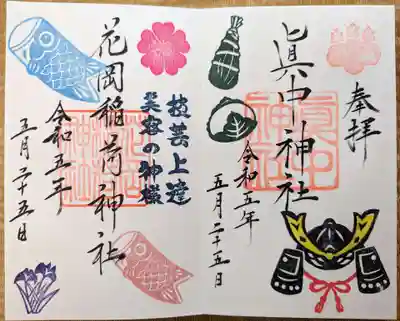 奉拝
眞中神社
眞中神社
令和五年
五月二十五日
技芸上達
芙容の神様
花岡稲荷神社
令和五年
五月二十五日